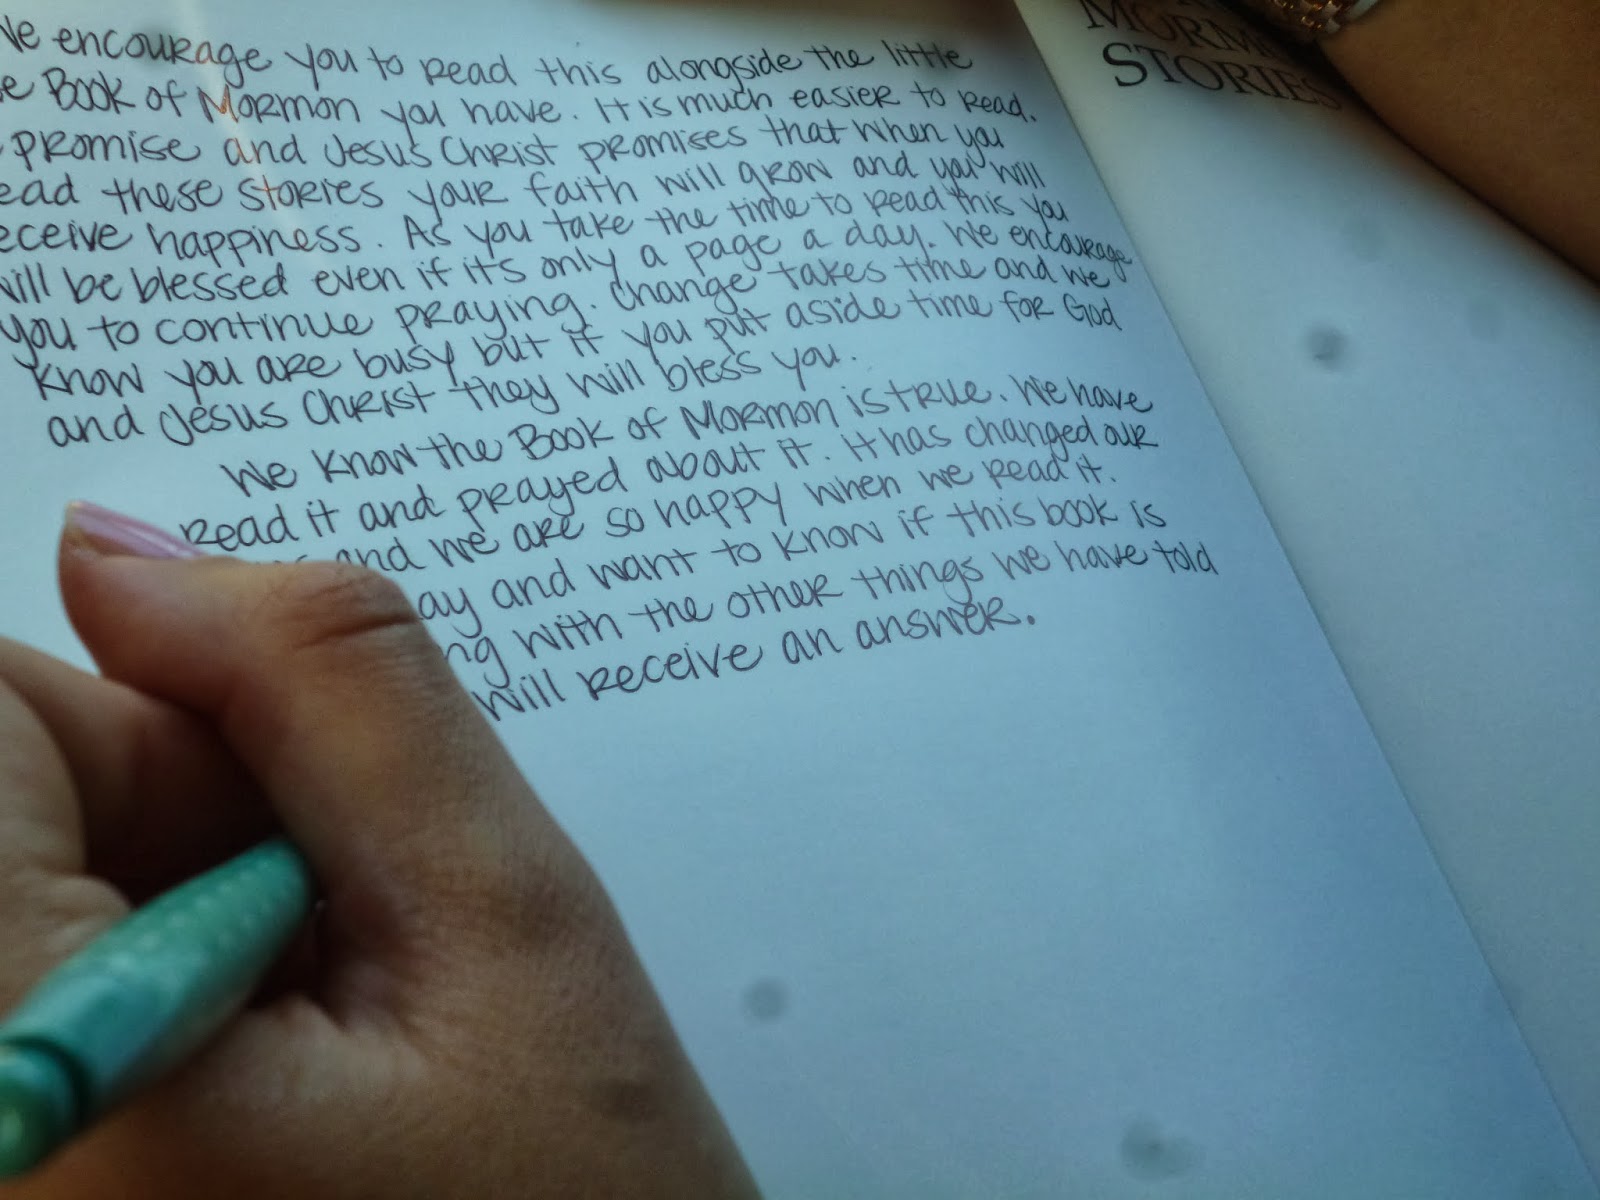 We encourage you to read this alongside the little
Book of Mormon you have. It is much easier to read.
promise and Jesus Christ promises that when you
read these stories your faith will grow and you will
receive happiness. As you take the time to read this you
will be blessed even if it's only a page a day. We encourage
you to continue praying. Change takes time and we
know you are busy but if you put aside time for God
and Jesus Christ they will bless you.
We know the Book of Mormon is true. We have
read it and prayed about it. It has changed our
and we are so happy when we read it.
and want to know if this book is
with the other things we have told
will receive an answer.
MORMON
STORIES